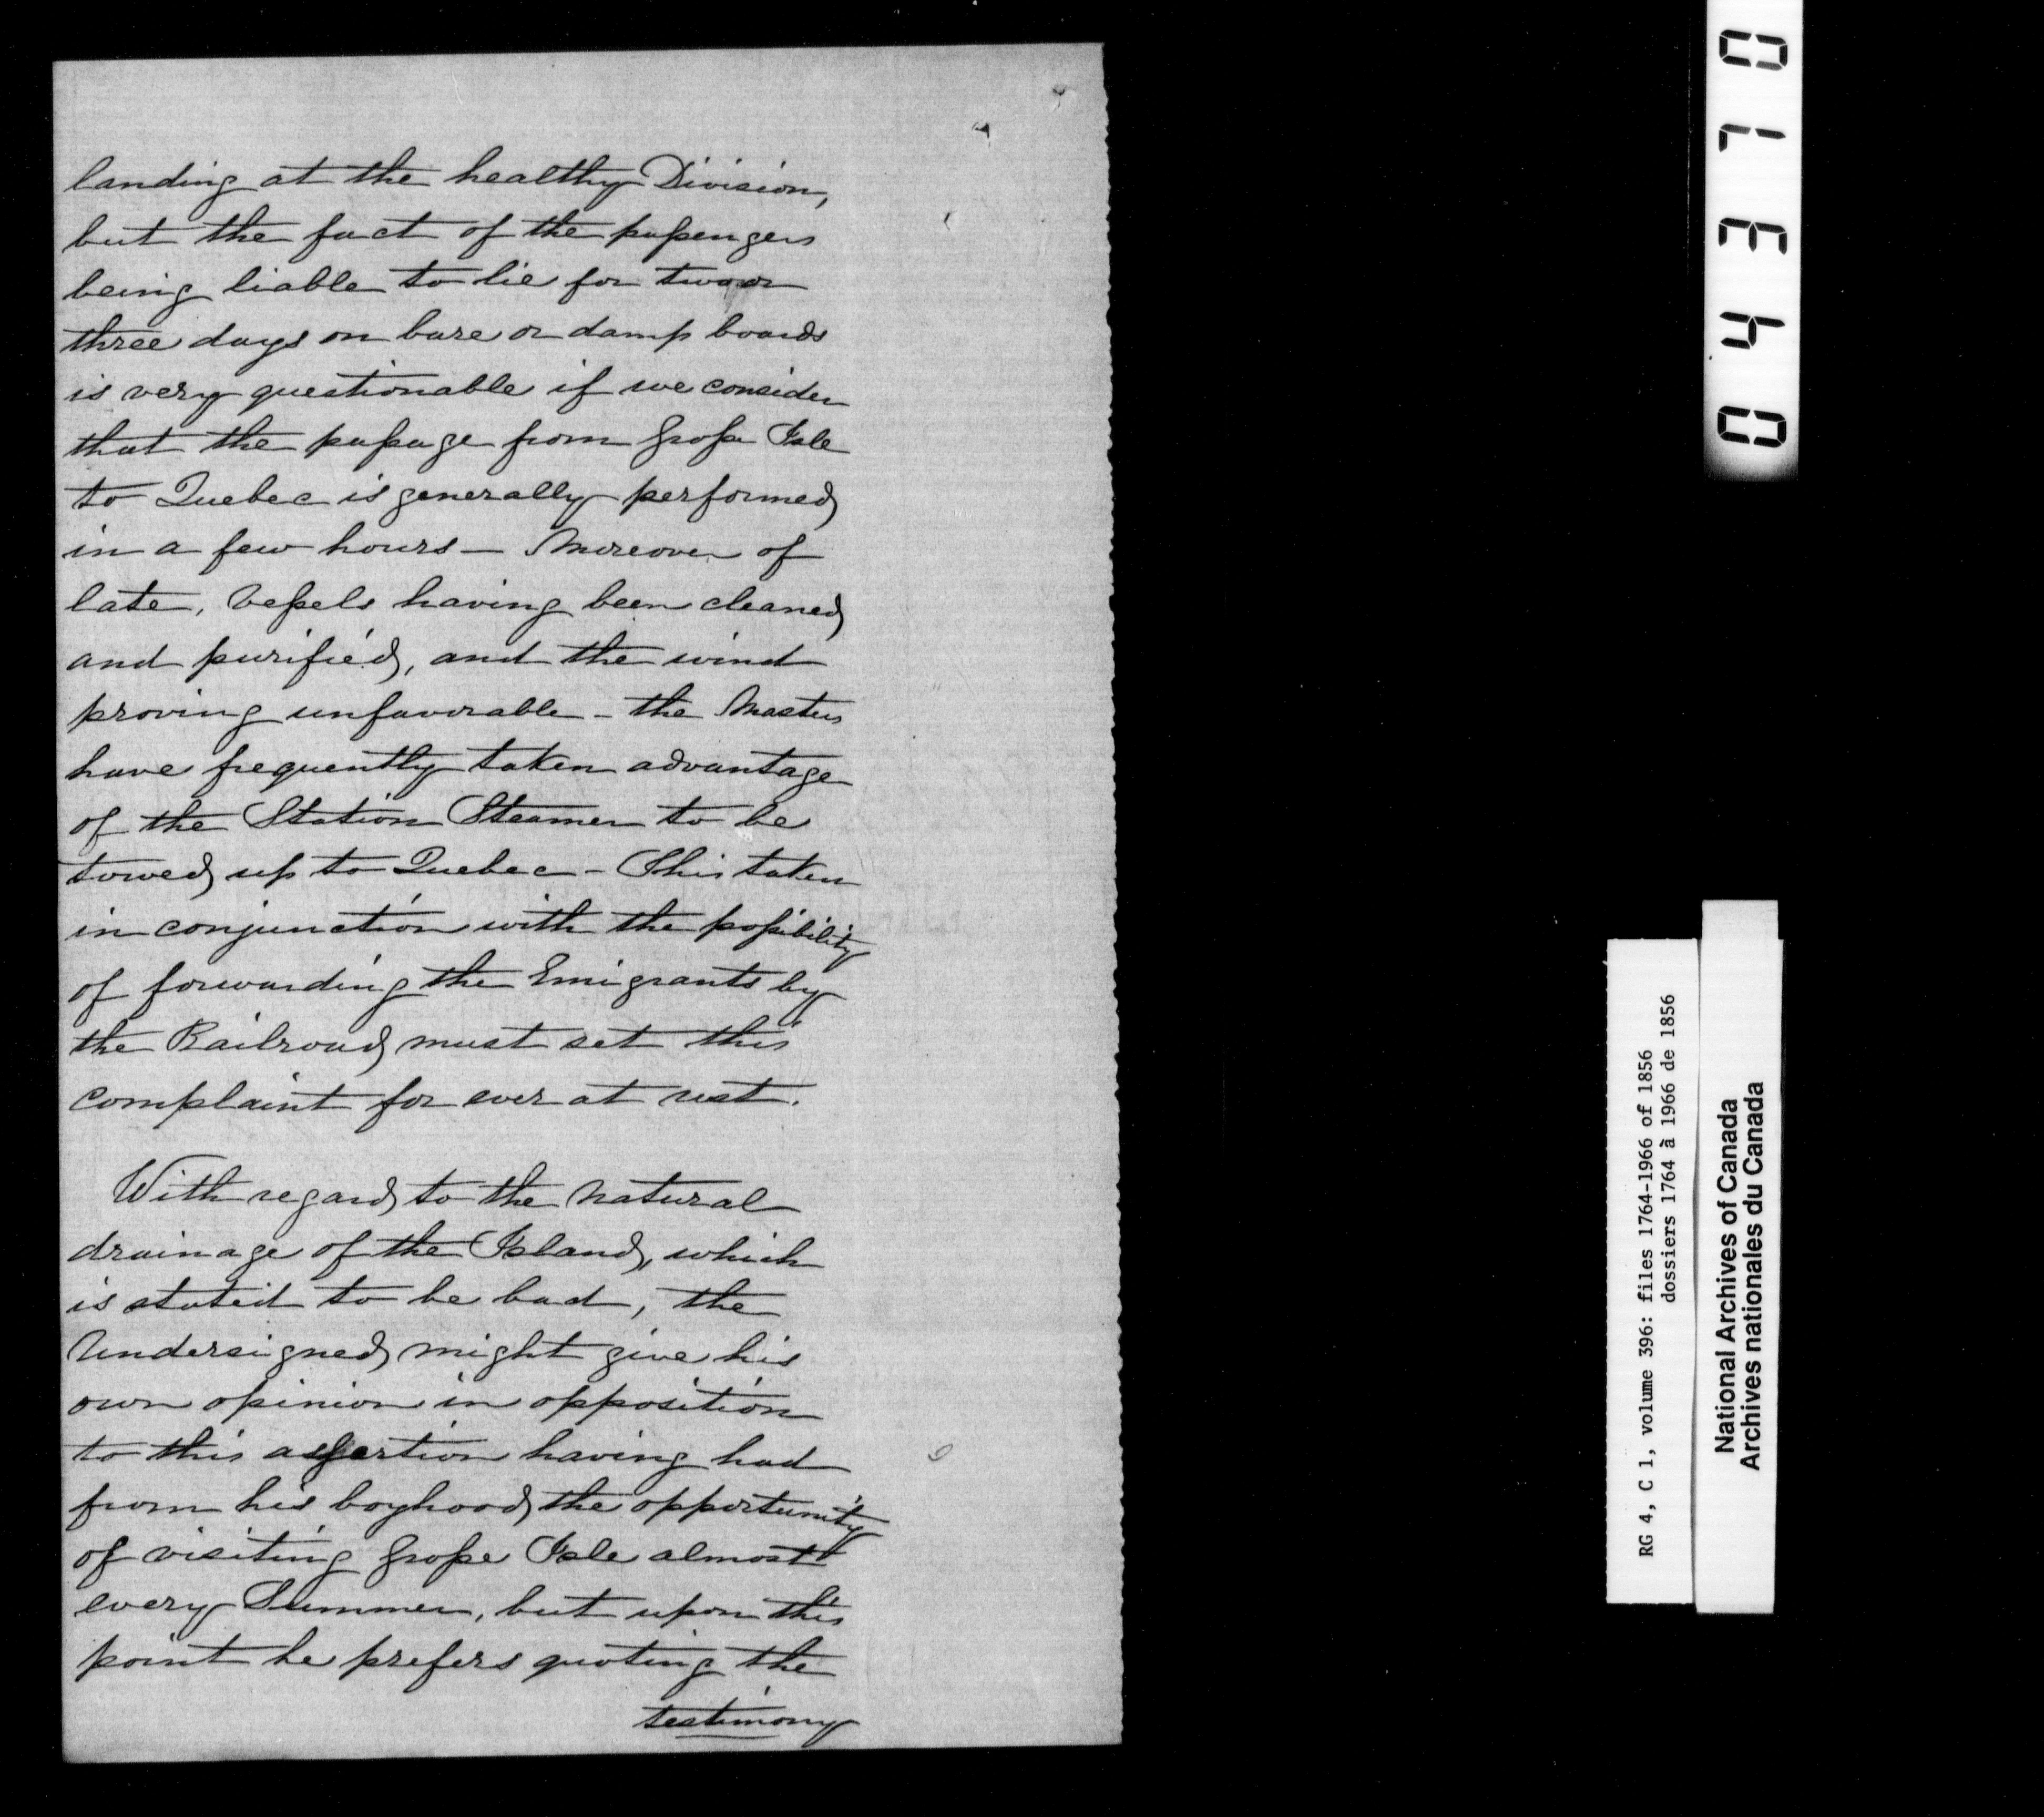 landing at the healthy Division,
but the fact of the passengers
being liable to lie for two or
three days on bare or damp boards
is very questionable if we consider
that the passage from Grosse Isle
to Quebec is generally performed
in a few hours — Moreover of
late, Vessels having been cleaned
and purified, and the wind
proving unfavorable – the Masters
have frequently taken advantage
of the Station Steamer to be
towed up to Quebec – This taken
in conjunction with the possibility
of forwarding the Emigrants by
the Railroad must set this
complaint for ever at rest.
With regard to the natural
drainage of the Island, which
is stated to be bad, the
Undersigned might give his
own opinion in opposition
to this assertion having had
from his boyhood the opportunity
of visiting Grosse Isle almost
every Summer, but upon this
point he prefers quoting the
testimony
04370
RG 4, C 1, volume 396: files 1764-1966 of 1856
dossiers 1764 à 1966 de 1856
National Archives of Canada
Archives nationales du Canada